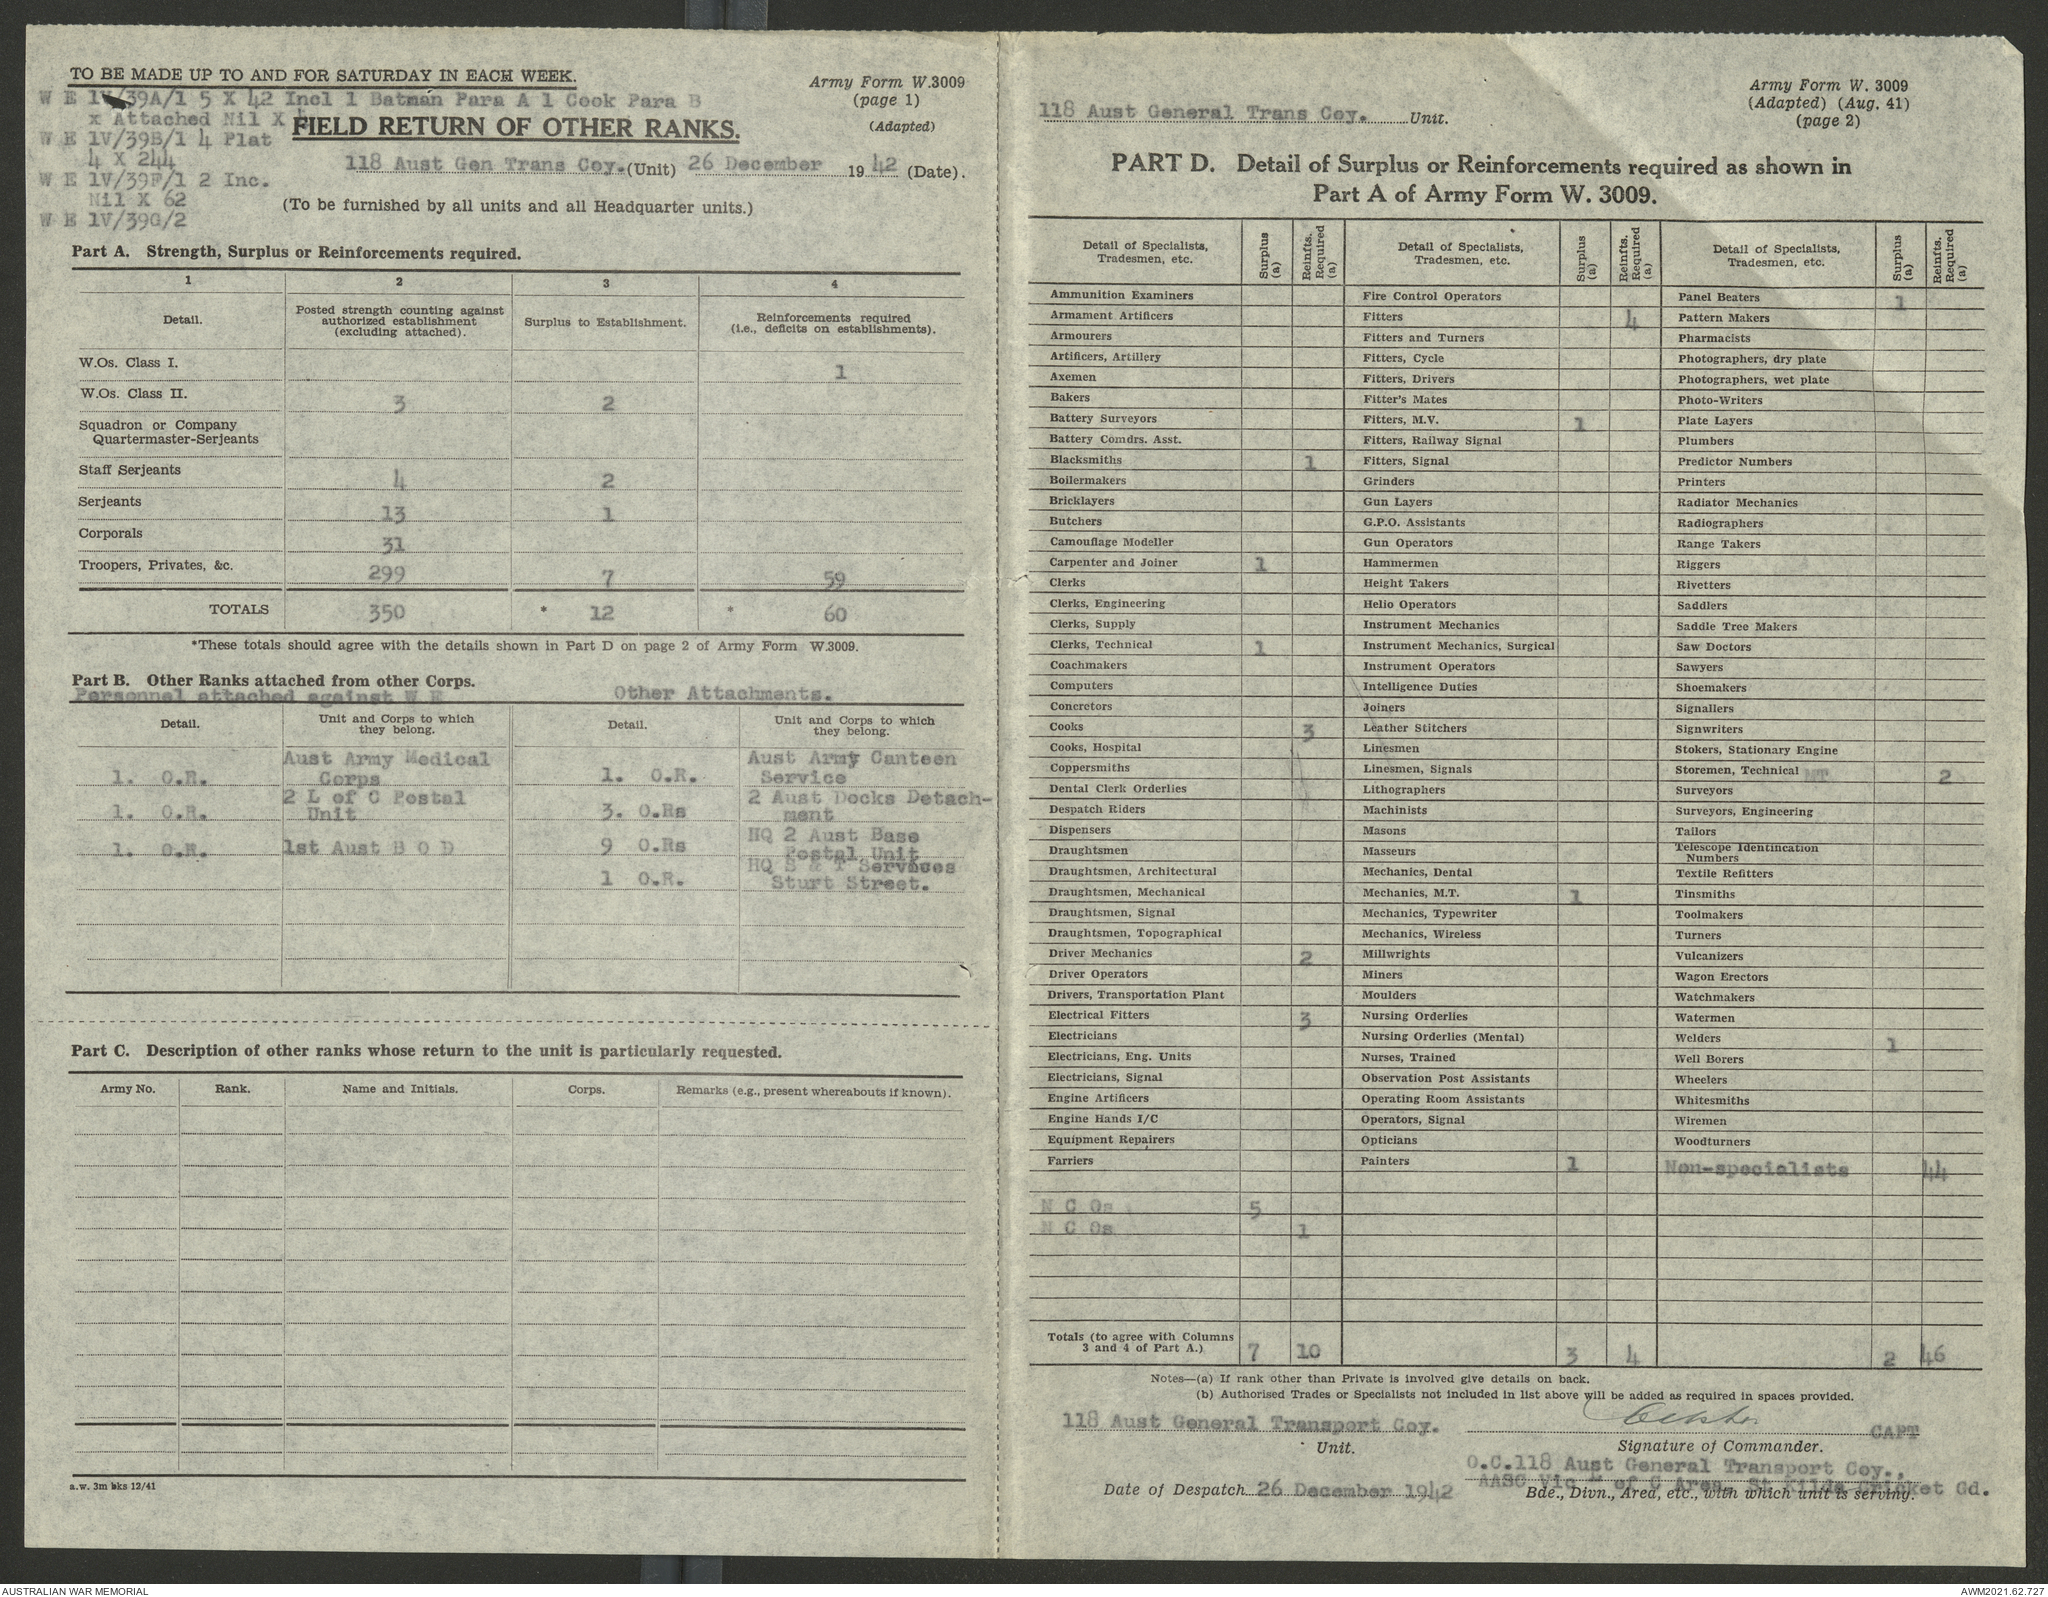 TO BE MADE UP TO AND FOR SATURDAY IN EACH WEEK.
W E 1V/39A/1 5 X 42 Incl 1 Batman Para A 1 Cook Para B
x Attached Nil X
W E 1V/39B/1 4 Plat
4 X 244
W E 1V/39F/1 2 Inc.
Nil X 62
W E 1V/39G/2
Army Form W.3009
(page 1)
(Adapted)
FIELD RETURN OF OTHER RANKS.
118 Aust Gen Trans Coy. (Unit) 26 December 19 42 (Date).
(To be furnished by all units and all Headquarter units.)
Part A. Strength, Surplus or Reinforcements required.
1 2 3 4
Detail. Posted strength counting against authorized establishment (excluding attached). Surplus to Establishment. Reinforcements required (i.e., deficits on establishments).
W.Os. Class I. 1
W.Os. Class II. 3 2
Squadron or Company
Quartermaster-Serjeants
Staff Serjeants 4 2
Serjeants 13 1
Corporals 31
Troopers, Privates, &c. 299 7 59
TOTALS 350 * 12 * 60
*These totals should agree with the details shown in Part D on page 2 of Army Form W.3009.
Part B. Other Ranks attached from other Corps.
Personnel attached against W E Other Attachments.
Detail. Unit and Corps to which they belong. Detail. Unit and Corps to which they belong.
1. O.R. Aust Army Medical Corps 1. O.R. Aust Army Canteen Service
1. O.R. 2 L of C Postal Unit 3. O.Rs 2 Aust Docks Detachment
1. O.R. 1st Aust B O D 9 O.Rs HQ 2 Aust Base Postal Unit
1 O.R. HQ S & T Services Sturt Street.
Part C. Description of other ranks whose return to the unit is particularly requested.
Army No. Rank. Name and Initials. Corps. Remarks (e.g., present whereabouts if known).
a.w. 3m bks 12/41
118 Aust General Trans Coy. Unit.
Army Form W. 3009
(Adapted) (Aug. 41)
(page 2)
PART D. Detail of Surplus or Reinforcements required as shown in
Part A of Army Form W. 3009.
Detail of Specialists, Tradesmen, etc. Surplus (a) Reinfts. Required (a) Detail of Specialists, Tradesmen, etc. Surplus (a) Reinfts. Required (a) Detail of Specialists, Tradesmen, etc. Surplus (a) Reinfts. Required (a)
Ammunition Examiners Fire Control Operators Panel Beaters 1
Armament Artificers Fitters 4 Pattern Makers
Armourers Fitters and Turners Pharmacists
Artificers, Artillery Fitters, Cycle Photographers, dry plate
Axemen Fitters, Drivers Photographers, wet plate
Bakers Fitter's Mates Photo-Writers
Battery Surveyors Fitters, M.V. 1 Plate Layers
Battery Comdrs. Asst. Fitters, Railway Signal Plumbers
Blacksmiths 1 Fitters, Signal Predictor Numbers
Boilermakers Grinders Printers
Bricklayers Gun Layers Radiator Mechanics
Butchers G.P.O. Assistants Radiographers
Camouflage Modeller Gun Operators Range Takers
Carpenter and Joiner 1 Hammermen Riggers
Clerks Height Takers Rivetters
Clerks, Engineering Helio Operators Saddlers
Clerks, Supply Instrument Mechanics Saddle Tree Makers
Clerks, Technical 1 Instrument Mechanics, Surgical Saw Doctors
Coachmakers Instrument Operators Sawyers
Computers Intelligence Duties Shoemakers
Concretors Joiners Signallers
Cooks 3 Leather Stitchers Signwriters
Cooks, Hospital Linesmen Stokers, Stationary Engine
Coppersmiths Linesmen, Signals Storemen, Technical MT 2
Dental Clerk Orderlies Lithographers Surveyors
Despatch Riders Machinists Surveyors, Engineering
Dispensers Masons Tailors
Draughtsmen Masseurs Telescope Identification Numbers
Draughtsmen, Architectural Mechanics, Dental Textile Refitters
Draughtsmen, Mechanical Mechanics, M.T. 1 Tinsmiths
Draughtsmen, Signal Mechanics, Typewriter Toolmakers
Draughtsmen, Topographical Mechanics, Wireless Turners
Driver Mechanics 2 Millwrights Vulcanizers
Driver Operators Miners Wagon Erectors
Drivers, Transportation Plant Moulders Watchmakers
Electrical Fitters 3 Nursing Orderlies Watermen
Electricians Nursing Orderlies (Mental) Welders 1
Electricians, Eng. Units Nurses, Trained Well Borers
Electricians, Signal Observation Post Assistants Wheelers
Engine Artificers Operating Room Assistants Whitesmiths
Engine Hands I/C Operators, Signal Wiremen
Equipment Repairers Opticians Woodturners
Farriers Painters 1 Non-specialists 44
N C Os 5
N C Os 1
Totals (to agree with Columns 3 and 4 of Part A.) 7 10 3 4 2 46
Notes—(a) If rank other than Private is involved give details on back.
(b) Authorised Trades or Specialists not included in list above will be added as required in spaces provided.
118 Aust General Transport Coy. CAPT
Unit. Signature of Commander.
O.C.118 Aust General Transport Coy.,
AASC Vic L of C Area, St Kilda Cricket Gd.
Date of Despatch 26 December 1942 Bde., Divn., Area, etc., with which unit is serving.
AUSTRALIAN WAR MEMORIAL AWM2021.62.727